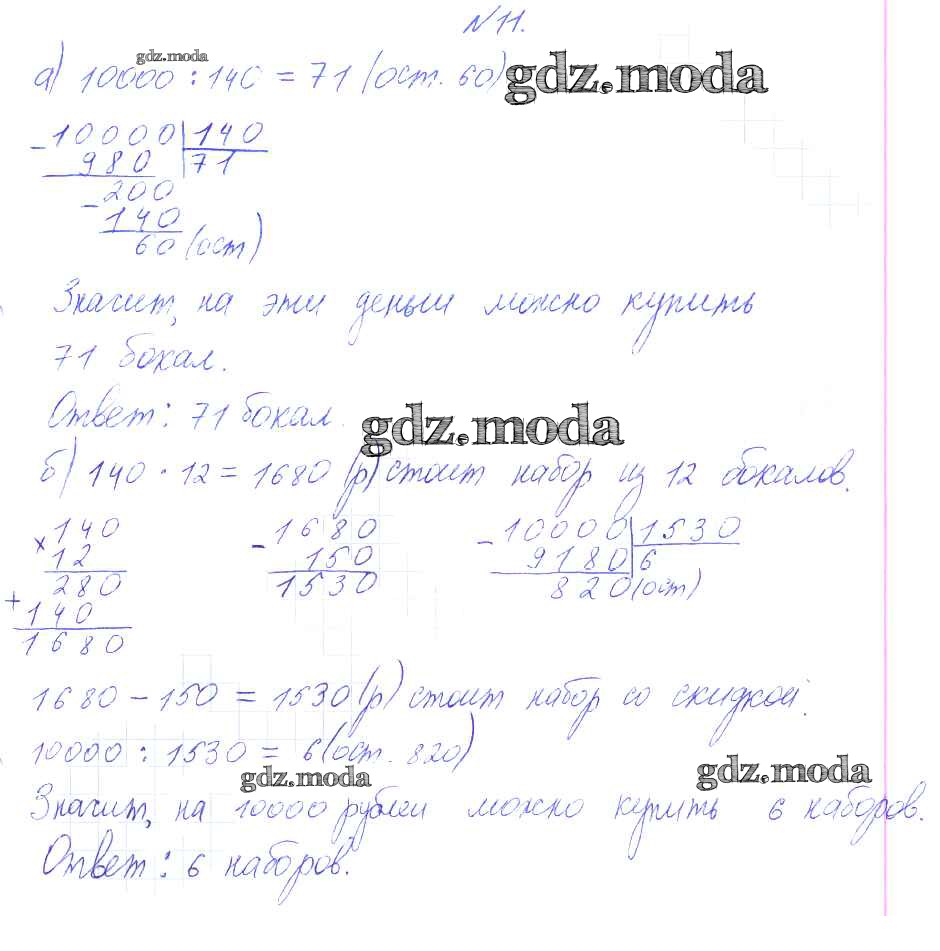 №11.
gdz.moda
а) 10000 : 140 = 71 (ост. 60)
gdz.moda
- 10000 | 140
980 | 71
- 200
140
60 (ост)
Значит, на эти деньги можно купить
71 бокал.
Ответ: 71 бокал.
gdz.moda
б) 140 · 12 = 1680 (р) стоит набор из 12 бокалов.
× 140
12
280
+ 140
1680
- 1680
150
1530
- 10000 | 1530
9180 | 6
820 (ост)
1680 - 150 = 1530 (р) стоит набор со скидкой.
10000 : 1530 = 6 (ост. 820)
gdz.moda
gdz.moda
Значит, на 10000 рублей можно купить 6 наборов.
Ответ: 6 наборов.